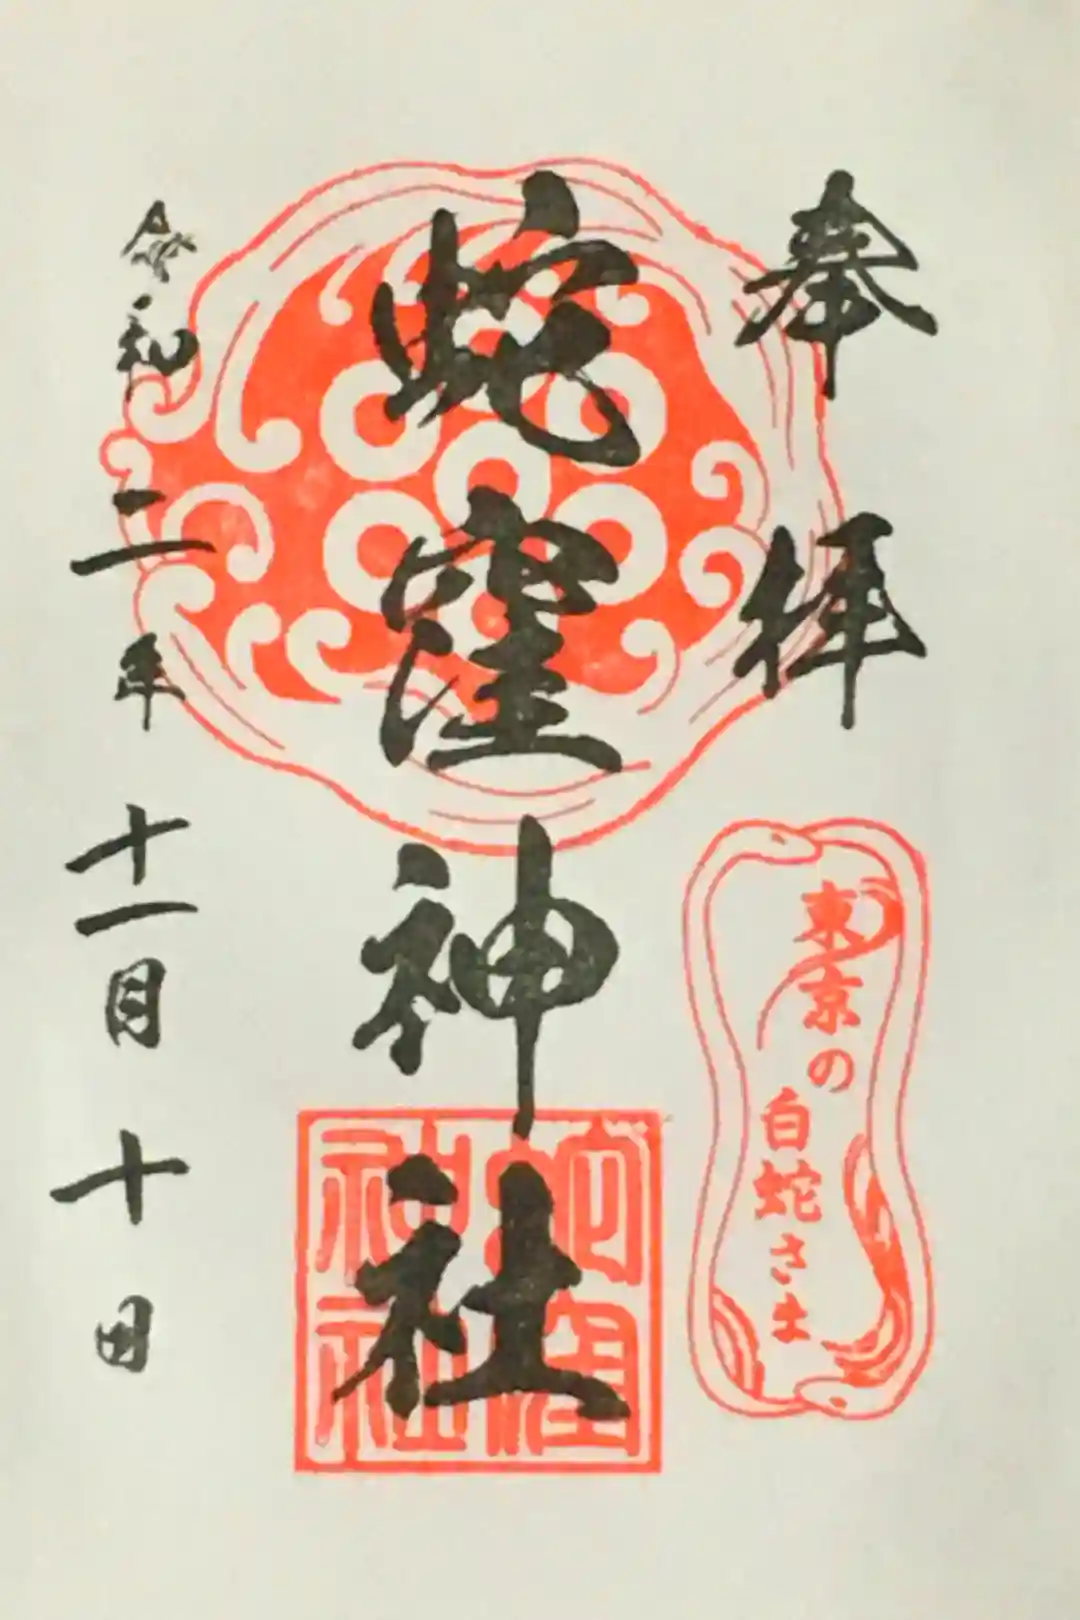 奉拝
東京の
白蛇さま
蛇窪神社
蛇窪
神社
令和二年十一月十日